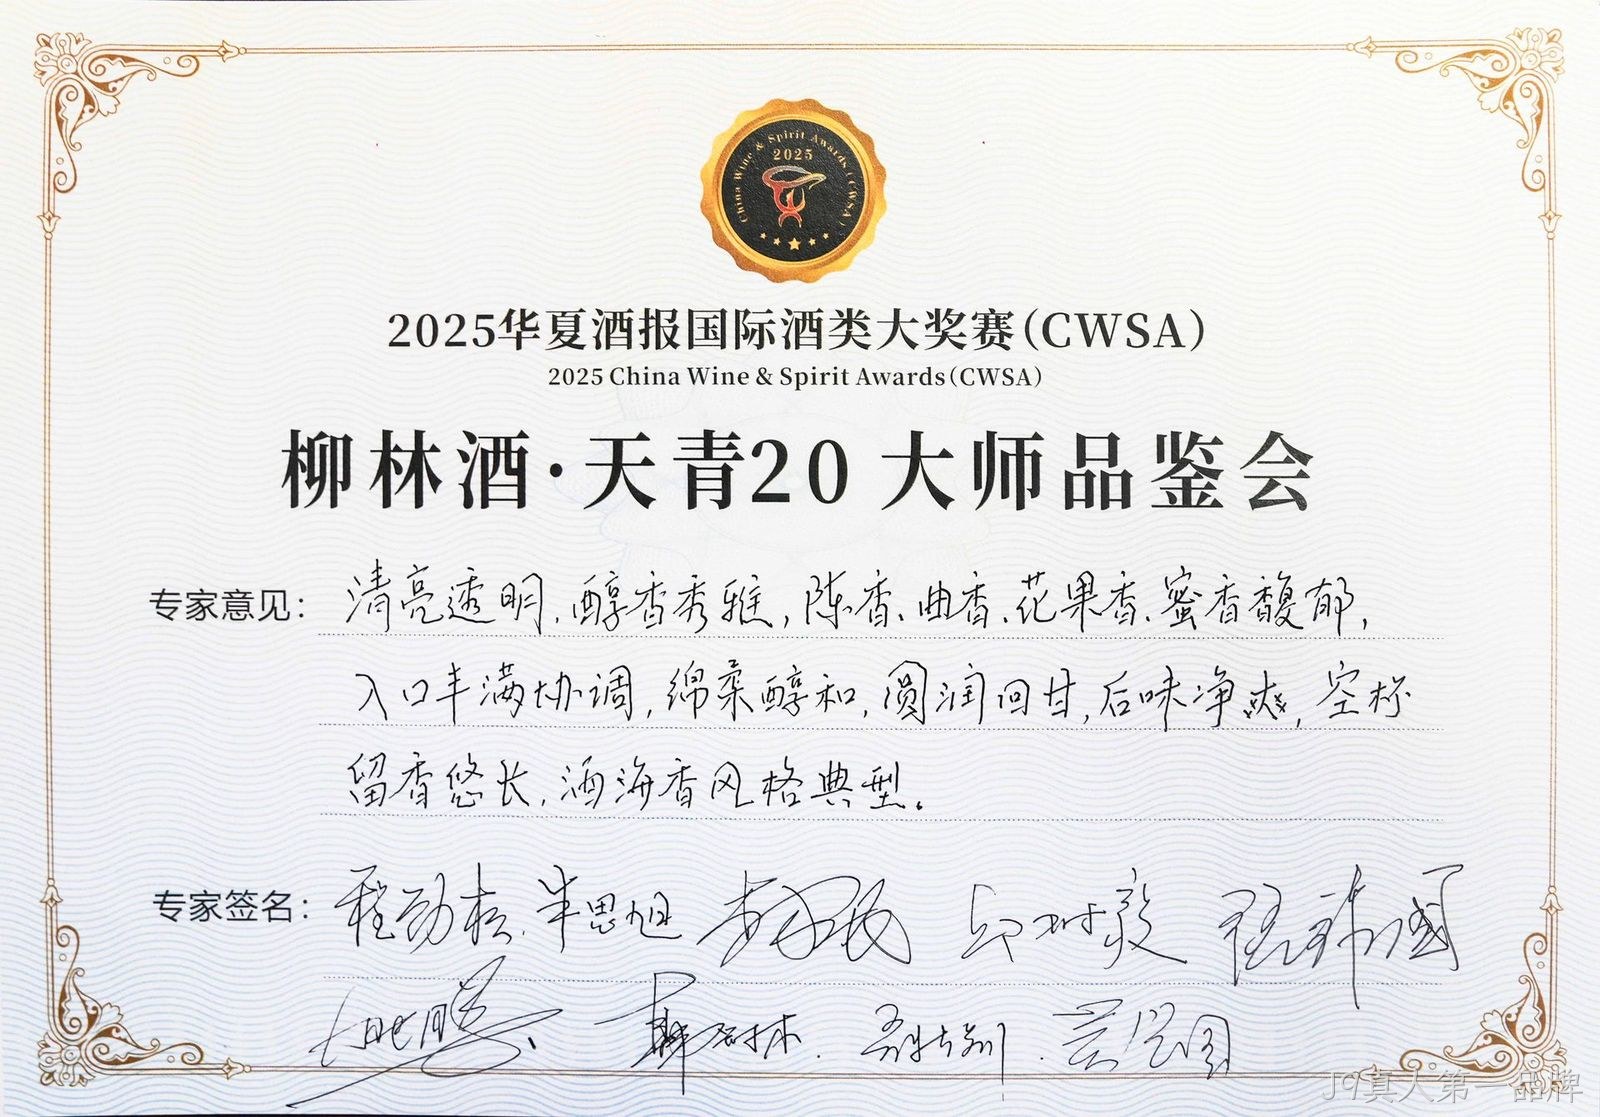 China Wine & Spirit Awards (CWSA)
2025
2025华夏酒报国际酒类大奖赛(CWSA)
2025 China Wine & Spirit Awards(CWSA)
柳林酒·天青20 大师品鉴会
专家意见: 清亮透明,醇香秀雅,陈香、曲香、花果香、蜜香馥郁,
入口丰满协调,绵柔醇和,圆润回甘,后味净爽,空杯
留香悠长,酒海香风格典型。
专家签名:
J9真人第一品牌